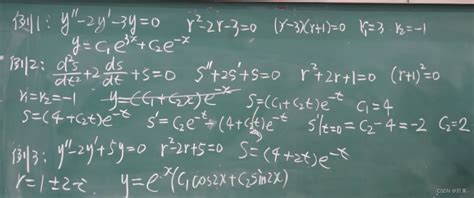 例1: y''-2y'-3y=0 r²-2r-3=0 (r-3)(r+1)=0 r₁=3 r₂=-1
y=C₁e^{3x}+C₂e^{-x}
例2: d²s/dt²+2ds/dt+s=0 s''+2s'+s=0 r²+2r+1=0 (r+1)²=0
r₁=r₂=-1 y=(C₁+C₂x)e^{-x} S=(C₁+C₂t)e^{-t} C₁=4
S=(4+C₂t)e^{-t} S'=C₂e^{-t}-(4+C₂t)e^{-t} S'|t=0=C₂-4=-2 C₂=2
例3: y''-2y'+5y=0 r²-2r+5=0 S=(4+2t)e^{-t}
r=1±2i y=e^{x}(C₁cos2x+C₂sin2x)